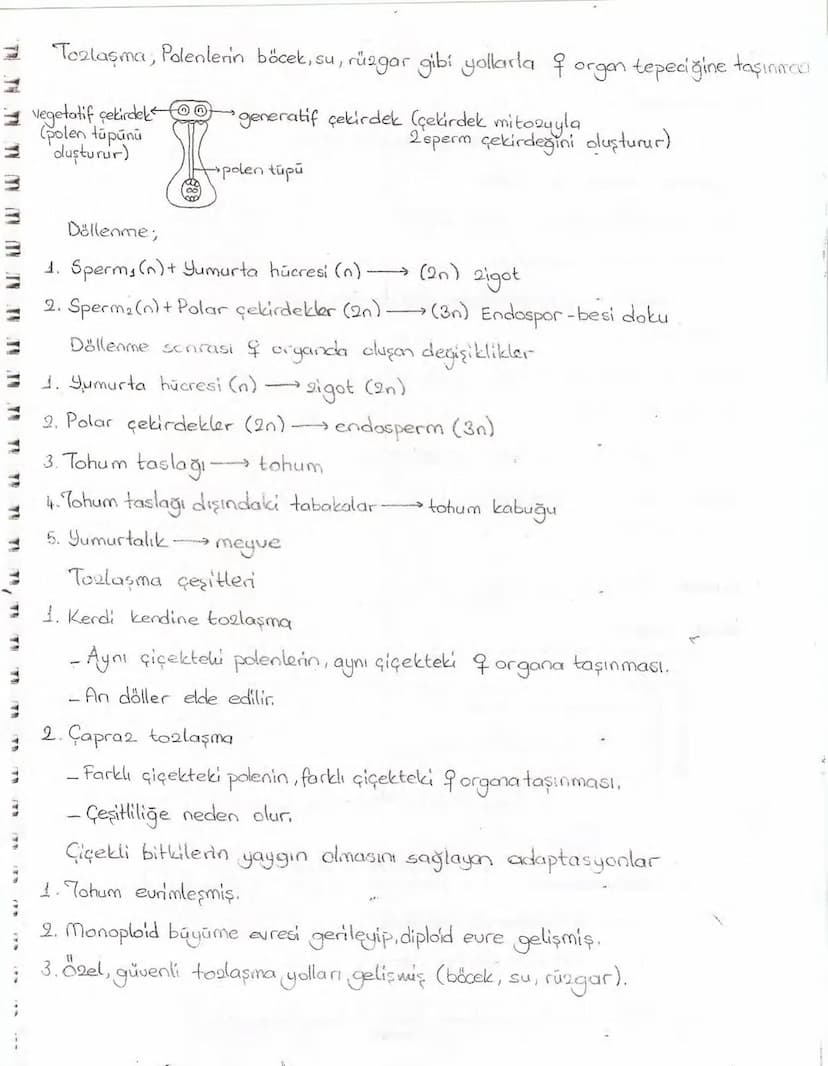 Tozlaşma; Polenlerin böcek, su, rüzgar gibi yollarla ♀ organ tepeciğine taşınması
vegetatif çekirdek
(polen tüpünü
oluşturur)
generatif çekirdek (çekirdek mitozuyla
2 sperm çekirdeğini oluşturur)
polen tüpü
Döllenme;
1. Sperm₁(n) + Yumurta hücresi (n) → (2n) zigot
2. Sperm₂(n) + Polar çekirdekler (2n) → (3n) Endospor - besi doku
Döllenme sonrası ♀ organda oluşan değişiklikler
1. Yumurta hücresi (n) → zigot (2n)
2. Polar çekirdekler (2n) → endosperm (3n)
3. Tohum taslağı → tohum
4. Tohum taslağı dışındaki tabakalar → tohum kabuğu
5. Yumurtalık → meyve
Tozlaşma çeşitleri
1. Kendi kendine tozlaşma
- Aynı çiçekteki polenlerin, aynı çiçekteki ♀ organa taşınması.
- Arı döller elde edilir.
2. Çapraz tozlaşma
- Farklı çiçekteki polenin, farklı çiçekteki ♀ organa taşınması.
- Çeşitliliğe neden olur.
Çiçekli bitkilerin yaygın olmasını sağlayan adaptasyonlar
1. Tohum evrimleşmiş.
2. Monoploid büyüme evresi gerileyip, diploid evre gelişmiş.
3. Özel, güvenli tozlaşma yolları gelişmiş (böcek, su, rüzgar).